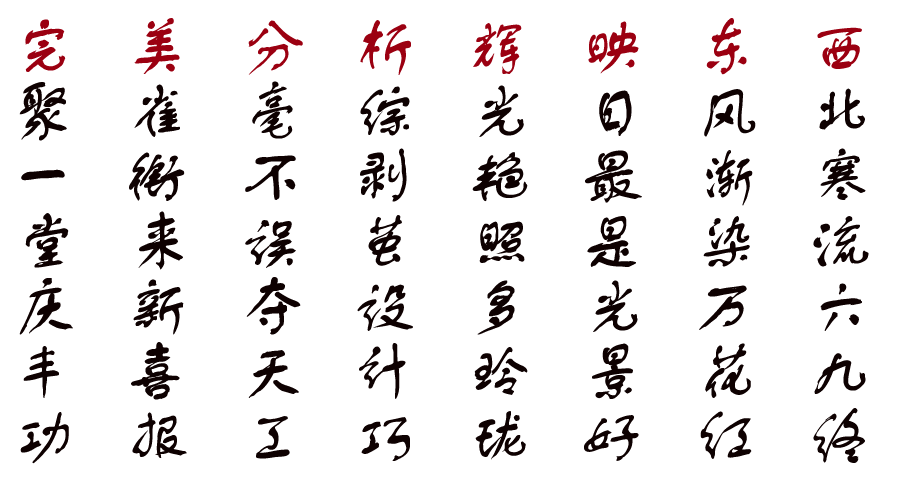 完聚一堂庆丰功
美雀衔来新喜报
分毫不误夺天工
析综剥茧设计巧
辉光艳照多玲珑
映日最是光景好
东风渐染万花红
西北寒流六九终